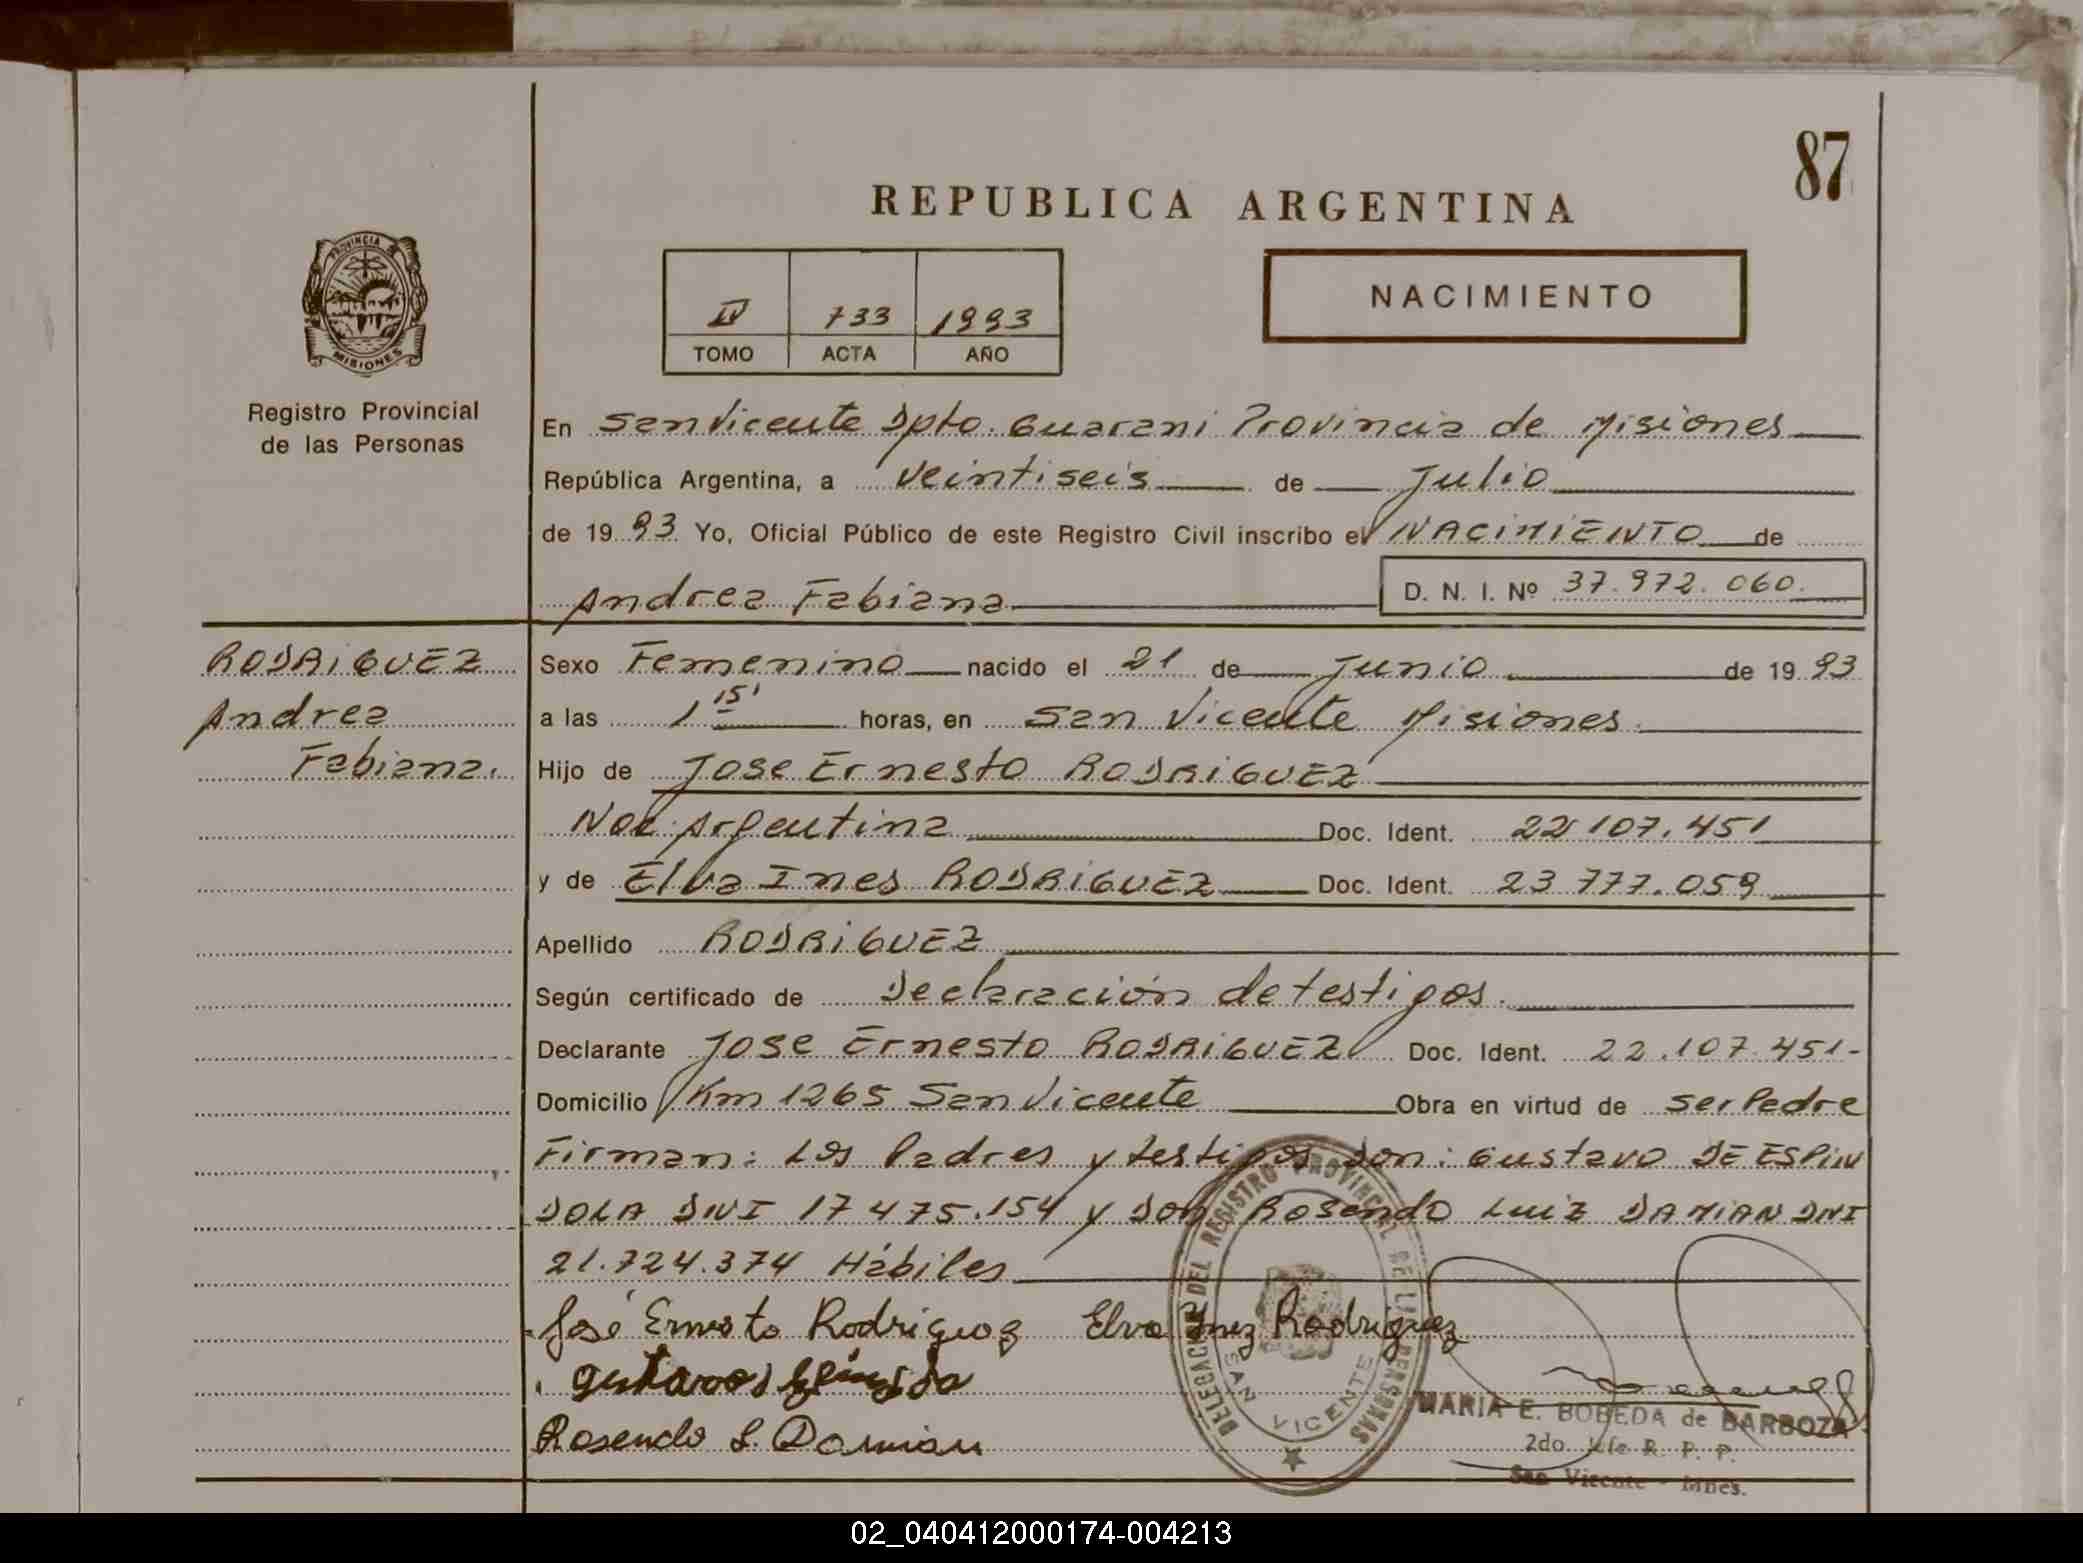 87
REPUBLICA ARGENTINA
PROVINCIA DE
MISIONES
Registro Provincial
de las Personas
IV 733 1993
TOMO ACTA AÑO
NACIMIENTO
En San Vicente Dpto. Guarani Provincia de Misiones
República Argentina, a Veintiseis de Julio
de 1993 Yo, Oficial Público de este Registro Civil inscribo el NACIMIENTO de
Andrea Fabiana D. N. I. Nº 37.972.060.
RODRIGUEZ
Andrea
Fabiana.
Sexo Femenino nacido el 21 de Junio de 1993
a las 1 15' horas, en San Vicente Misiones.
Hijo de Jose Ernesto RODRIGUEZ
Nac. Argentina Doc. Ident. 22 107.451
y de Elva Ines RODRIGUEZ Doc. Ident. 23 777.059
Apellido RODRIGUEZ
Según certificado de Declaración de testigos.
Declarante Jose Ernesto RODRIGUEZ Doc. Ident. 22.107.451-
Domicilio Km 1265 San Vicente Obra en virtud de ser Padre
Firman: Los Padres y testigos Don: Gustavo DE ESPIN
DOLA DNI 17 475.154 y Don Rosendo Luiz DAMIAN DNI
21.724.374 Hábiles
José Ernesto Rodriguez Elva Inez Rodriguez
Rosendo L. Damian
DELEGACION DEL REGISTRO PROVINCIAL DE LAS PERSONAS
SAN VICENTE
MARIA E. BOBEDA de BARBOZA
2do. Jefe R. P. P.
San Vicente - Mnes.
02_040412000174-004213